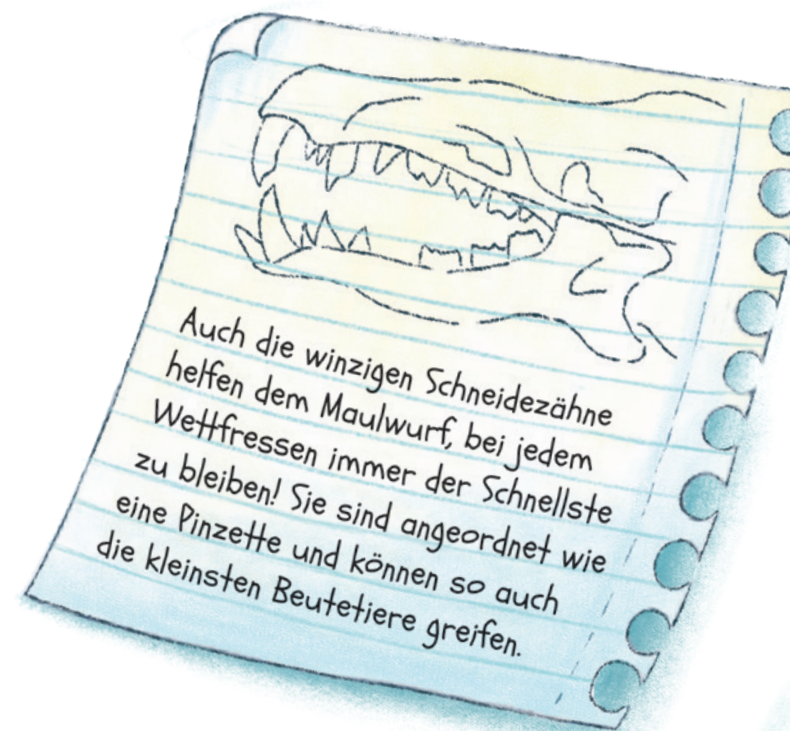 Auch die winzigen Schneidezähne
helfen dem Maulwurf, bei jedem
Wettfressen immer der Schnellste
zu bleiben! Sie sind angeordnet wie
eine Pinzette und können so auch
die kleinsten Beutetiere greifen.